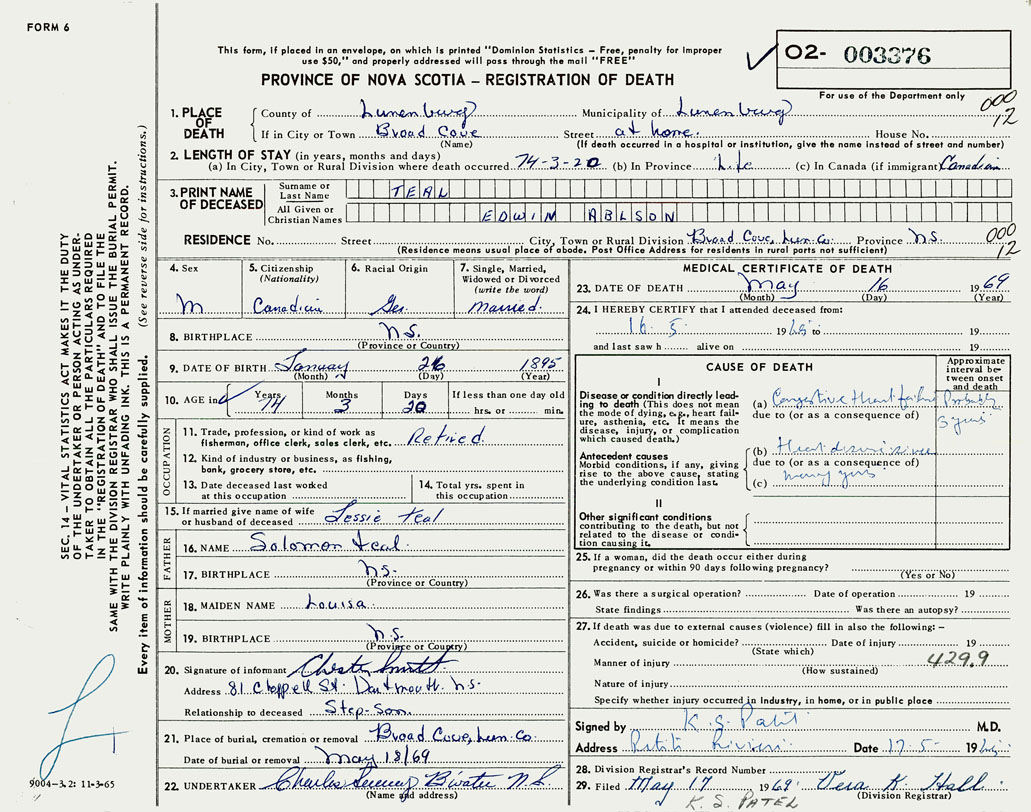 FORM 6
This form, if placed in an envelope, on which is printed "Dominion Statistics – Free, penalty for improper
use $50," and properly addressed will pass through the mail "FREE"
PROVINCE OF NOVA SCOTIA – REGISTRATION OF DEATH
O2- 003376
For use of the Department only
000
12
1. PLACE OF DEATH
County of Lunenburg Municipality of Lunenburg
If in City or Town Broad Cove Street at home. House No.
(Name) (If death occurred in a hospital or institution, give the name instead of street and number)
2. LENGTH OF STAY (in years, months and days)
(a) In City, Town or Rural Division where death occurred 74-3-20 (b) In Province Life (c) In Canada (if immigrant) Canadian
3. PRINT NAME OF DECEASED
Surname or Last Name TEAL
All Given or Christian Names EDWIN ABLSON
RESIDENCE No. Street City, Town or Rural Division Broad Cove, Lun. Co. Province N.S.
(Residence means usual place of abode. Post Office Address for residents in rural parts not sufficient)
000
12
4. Sex M
5. Citizenship (Nationality) Canadian
6. Racial Origin Ger.
7. Single, Married, Widowed or Divorced (write the word) Married.
8. BIRTHPLACE N.S.
(Province or Country)
9. DATE OF BIRTH January 26 1895
(Month) (Day) (Year)
10. AGE in Years 74 Months 3 Days 20 If less than one day old
hrs. or min.
OCCUPATION
11. Trade, profession, or kind of work as
fisherman, office clerk, sales clerk, etc. Retired
12. Kind of industry or business, as fishing,
bank, grocery store, etc.
13. Date deceased last worked
at this occupation
14. Total yrs. spent in
this occupation
15. If married give name of wife
or husband of deceased Jessie Teal
FATHER
16. NAME Solomon Teal
17. BIRTHPLACE N.S.
(Province or Country)
MOTHER
18. MAIDEN NAME Louisa
19. BIRTHPLACE N.S.
(Province or Country)
20. Signature of informant
Address 81 Chappell St. Dartmouth. N.S.
Relationship to deceased Step-Son.
21. Place of burial, cremation or removal Broad Cove, Lun. Co.
Date of burial or removal May 18/69
22. UNDERTAKER Charles N.S.
(Name and address)
MEDICAL CERTIFICATE OF DEATH
23. DATE OF DEATH May 16 1969
(Month) (Day) (Year)
24. I HEREBY CERTIFY that I attended deceased from:
16. 5. 19 to 19
and last saw h alive on 19
CAUSE OF DEATH
Approximate interval between onset and death
I
Disease or condition directly leading to death (This does not mean
the mode of dying, e.g., heart failure, asthenia, etc. It means the
disease, injury, or complication
which caused death.)
(a) Congestive Heart failure Probably 5 yrs
due to (or as a consequence of)
Antecedent causes
Morbid conditions, if any, giving
rise to the above cause, stating
the underlying condition last.
(b) Heart disease since
due to (or as a consequence of)
many yrs
(c)
II
Other significant conditions
contributing to the death, but not
related to the disease or condition causing it.
25. If a woman, did the death occur either during
pregnancy or within 90 days following pregnancy?
(Yes or No)
26. Was there a surgical operation? Date of operation 19
State findings Was there an autopsy?
27. If death was due to external causes (violence) fill in also the following: –
Accident, suicide or homicide? Date of injury 19
(State which)
Manner of injury 429.9
(How sustained)
Nature of injury
Specify whether injury occurred in Industry, in home, or in public place
Signed by K. S. Patel M.D.
Address Date 17-5- 19
28. Division Registrar's Record Number
29. Filed May 17 1969 Vera K. Hall
(Division Registrar)
K. S. PATEL
SEC. 14 – VITAL STATISTICS ACT MAKES IT THE DUTY
OF THE UNDERTAKER OR PERSON ACTING AS UNDER-
TAKER TO OBTAIN ALL THE PARTICULARS REQUIRED
IN THE "REGISTRATION OF DEATH" AND TO FILE THE
SAME WITH THE DIVISION REGISTRAR WHO SHALL ISSUE THE BURIAL PERMIT.
WRITE PLAINLY WITH UNFADING INK. THIS IS A PERMANENT RECORD.
Every item of information should be carefully supplied. (See reverse side for instructions.)
9004-3.2: 11-3-65